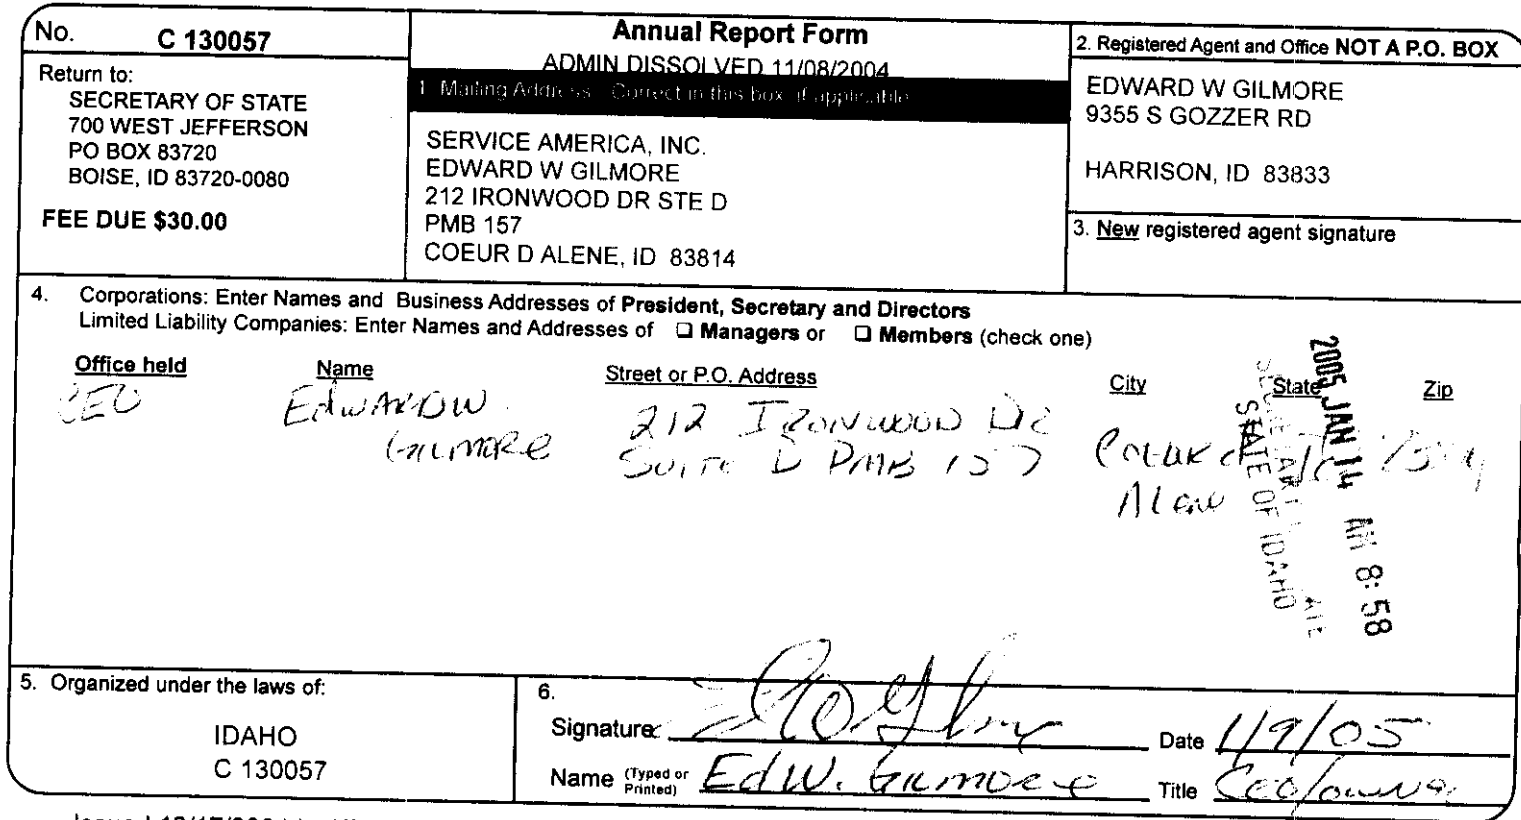 No. C 130057
Return to:
SECRETARY OF STATE
700 WEST JEFFERSON
PO BOX 83720
BOISE, ID 83720-0080
FEE DUE $30.00
Annual Report Form
ADMIN DISSOLVED 11/08/2004
1. Mailing Address - Correct in this box, if applicable
SERVICE AMERICA, INC.
EDWARD W GILMORE
212 IRONWOOD DR STE D
PMB 157
COEUR D ALENE, ID 83814
2. Registered Agent and Office NOT A P.O. BOX
EDWARD W GILMORE
9355 S GOZZER RD
HARRISON, ID 83833
3. New registered agent signature
4. Corporations: Enter Names and Business Addresses of President, Secretary and Directors
Limited Liability Companies: Enter Names and Addresses of ❏ Managers or ❏ Members (check one)
Office held Name Street or P.O. Address City State Zip
CEO EdWARD W 212 IRONWOOD Dr
GILMORE SUITE D PMB 157 Coeur d
Alene
2005 JAN 14 AM 8:58
STATE OF IDAHO
5. Organized under the laws of:
IDAHO
C 130057
6.
Signature: Date 1/9/05
Name (Typed or Printed) Ed W. Gilmore Title CEO/owner